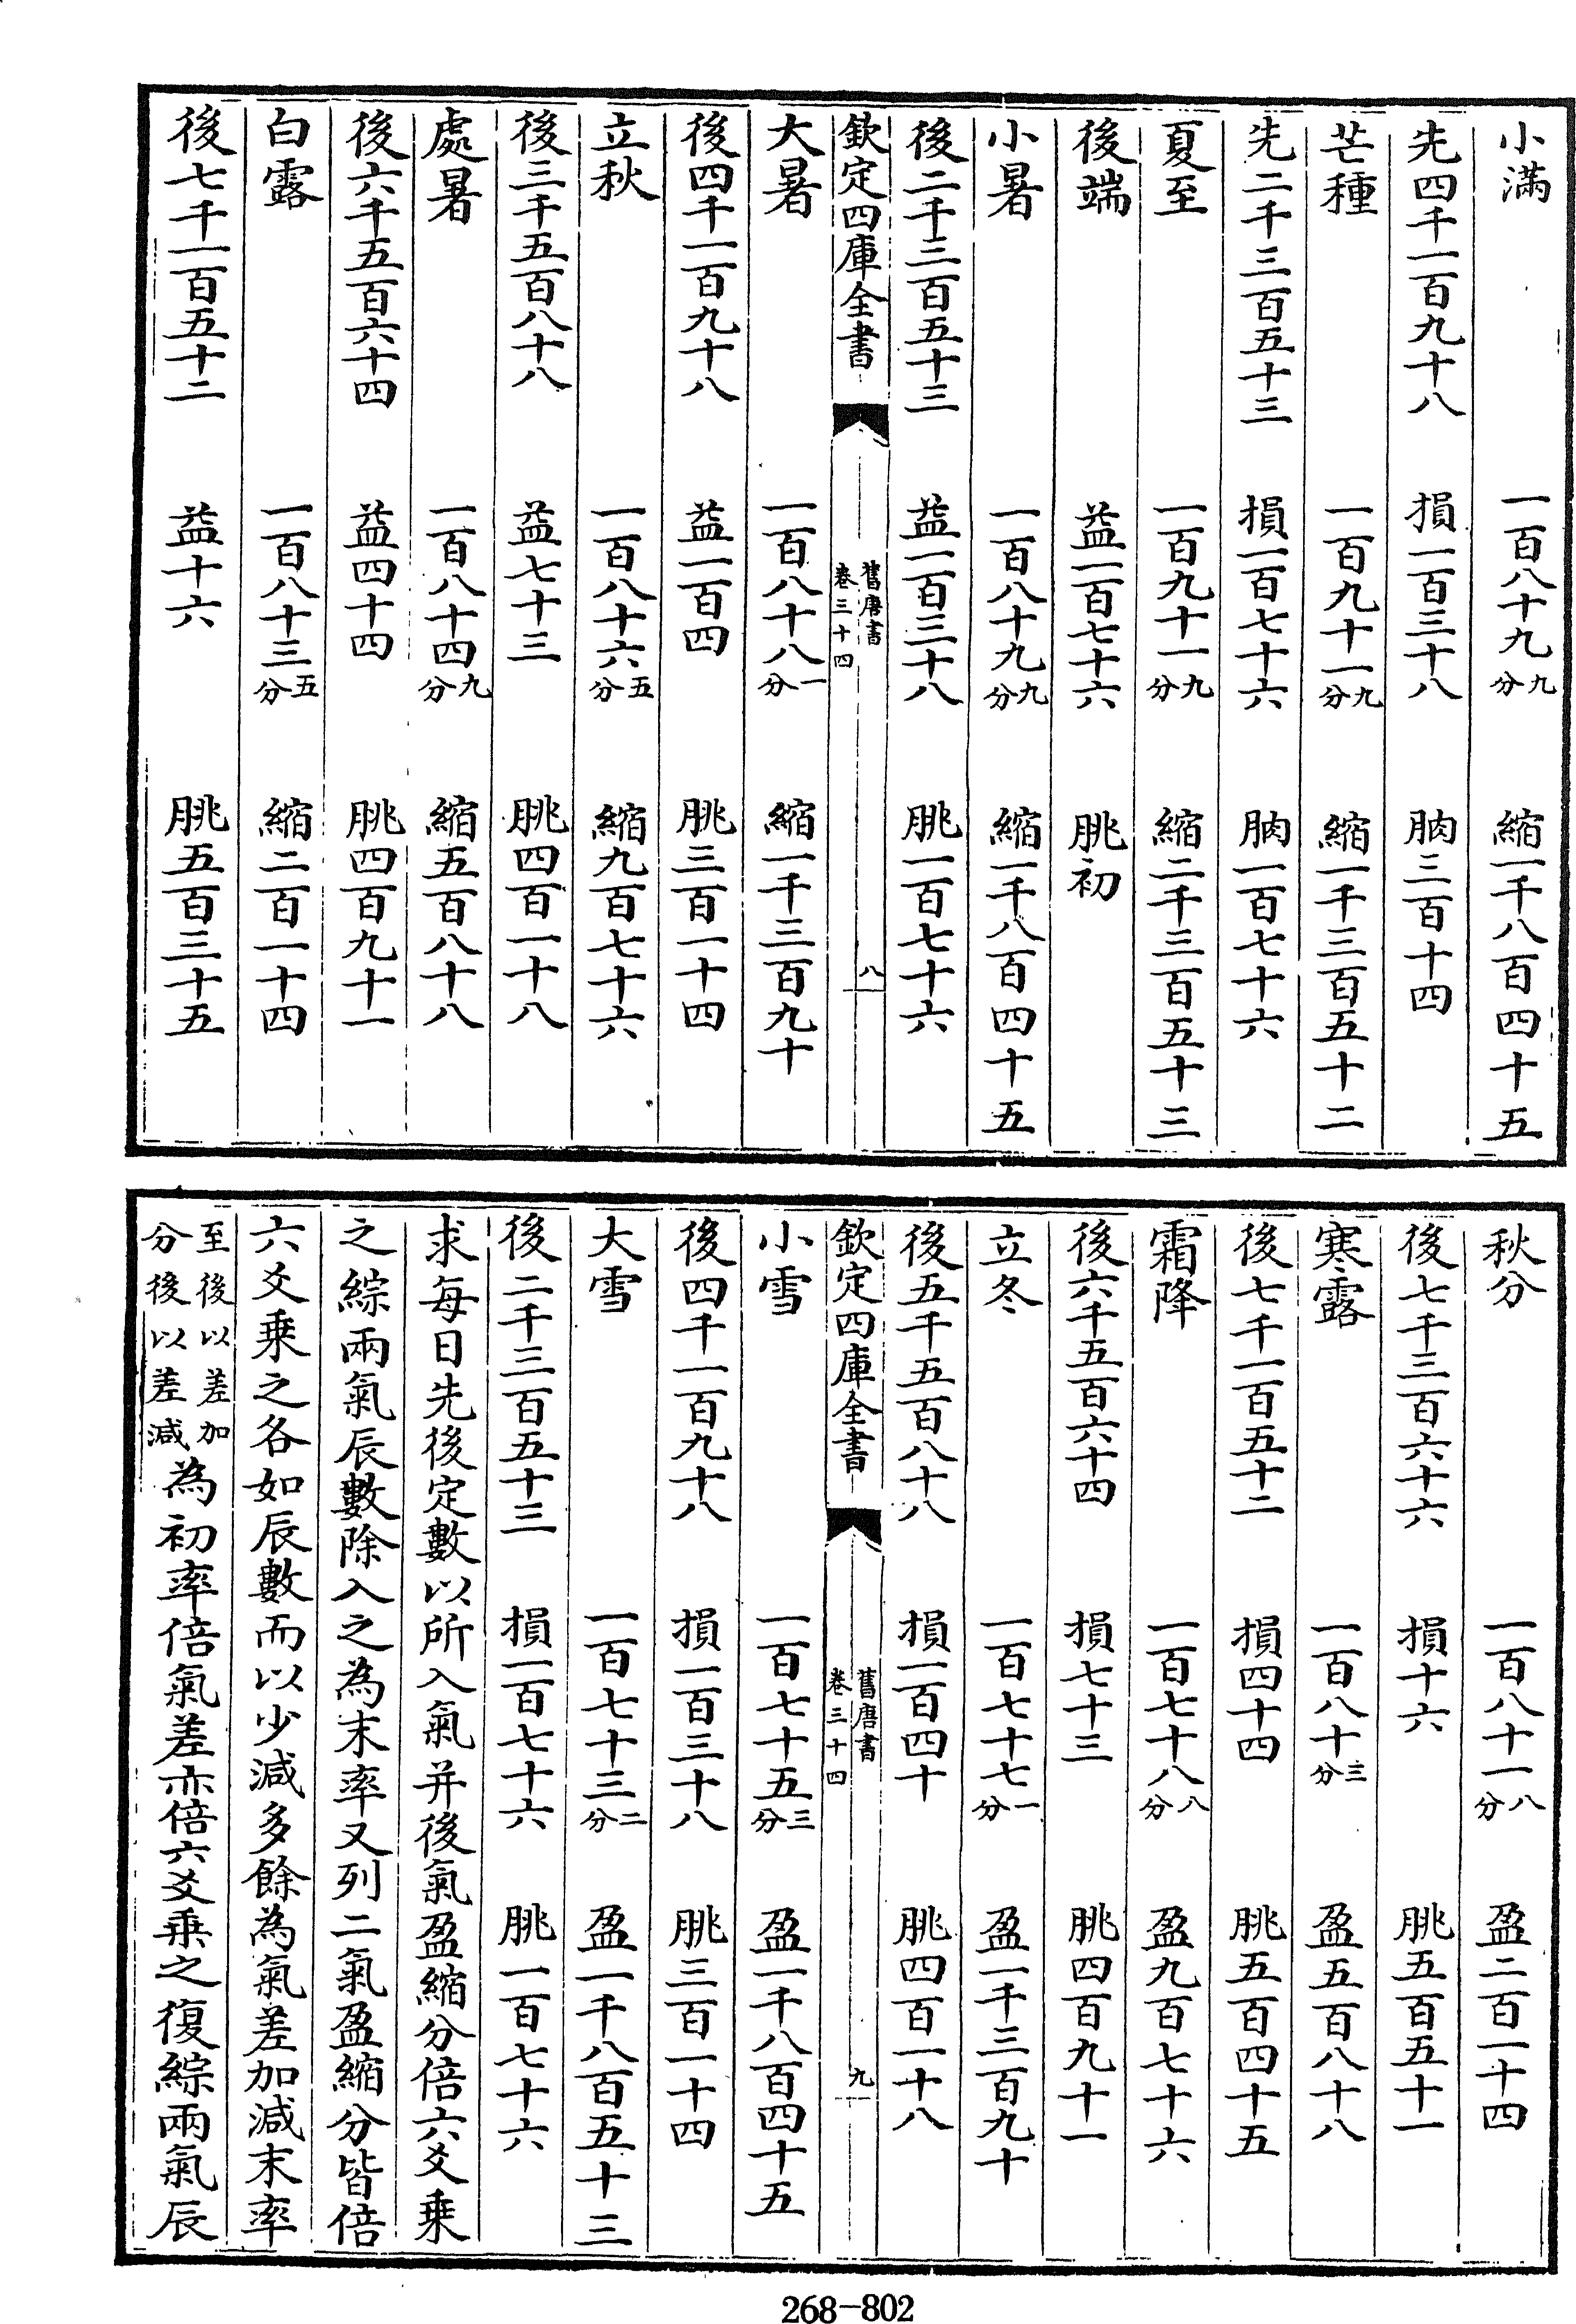 小滿 一百八十九九分 縮一千八百四十五
先四千一百九十八 損一百三十八 朒三百十四
芒種 一百九十一九分 縮一千三百五十二
先二千三百五十三 損一百七十六 朒一百七十六
夏至 一百九十一九分 縮二千三百五十三
後端 益一百七十六 朓初
小暑 一百八十九九分 縮一千八百四十五
後二千三百五十三 益一百三十八 朓一百七十六
欽定四庫全書 舊唐書 卷三十四 八
大暑 一百八十八一分 縮一千三百九十
後四千一百九十八 益一百四 朓三百一十四
立秋 一百八十六五分 縮九百七十六
後三千五百八十八 益七十三 朓四百一十八
處暑 一百八十四九分 縮五百八十八
後六千五百六十四 益四十四 朓四百九十一
白露 一百八十三五分 縮二百一十四
後七千一百五十二 益十六 朓五百三十五
秋分 一百八十一八分 盈二百一十四
後七千三百六十六 損十六 朓五百五十一
寒露 一百八十三分 盈五百八十八
後七千一百五十二 損四十四 朓五百四十五
霜降 一百七十八八分 盈九百七十六
後六千五百六十四 損七十三 朓四百九十一
立冬 一百七十七一分 盈一千三百九十
後五千五百八十八 損一百四十 朓四百一十八
欽定四庫全書 舊唐書 卷三十四 九
小雪 一百七十五三分 盈一千八百四十五
後四千一百九十八 損一百三十八 朓三百一十四
大雪 一百七十三二分 盈一千八百五十三
後二千三百五十三 損一百七十六 朓一百七十六
求每日先後定數以所入氣并後氣盈縮分倍六爻乗
之綜兩氣辰數除入之為末率又列二氣盈縮分皆倍
六爻乗之各如辰數而以少減多餘為氣差加減末率
至後以差加分後以差減為初率倍氣差亦倍六爻乗之復綜兩氣辰
268-802